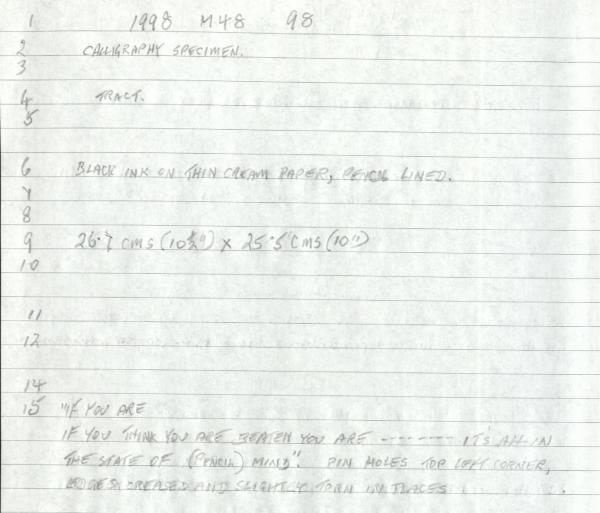 1 1998 M48 98
2 CALLIGRAPHY SPECIMEN.
3
4 TRACT.
5
6 BLACK INK ON THIN CREAM PAPER, PENCIL LINED.
7
8
9 26.7 cms (10½") x 25.5 cms (10")
10
11
12
14
15 "IF YOU ARE
IF YOU THINK YOU ARE BEATEN YOU ARE ------- IT'S ALL IN
THE STATE OF (PENCIL) MIND". PIN HOLES TOP LEFT CORNER,
EDGES CREASED AND SLIGHTLY TORN IN PLACES.